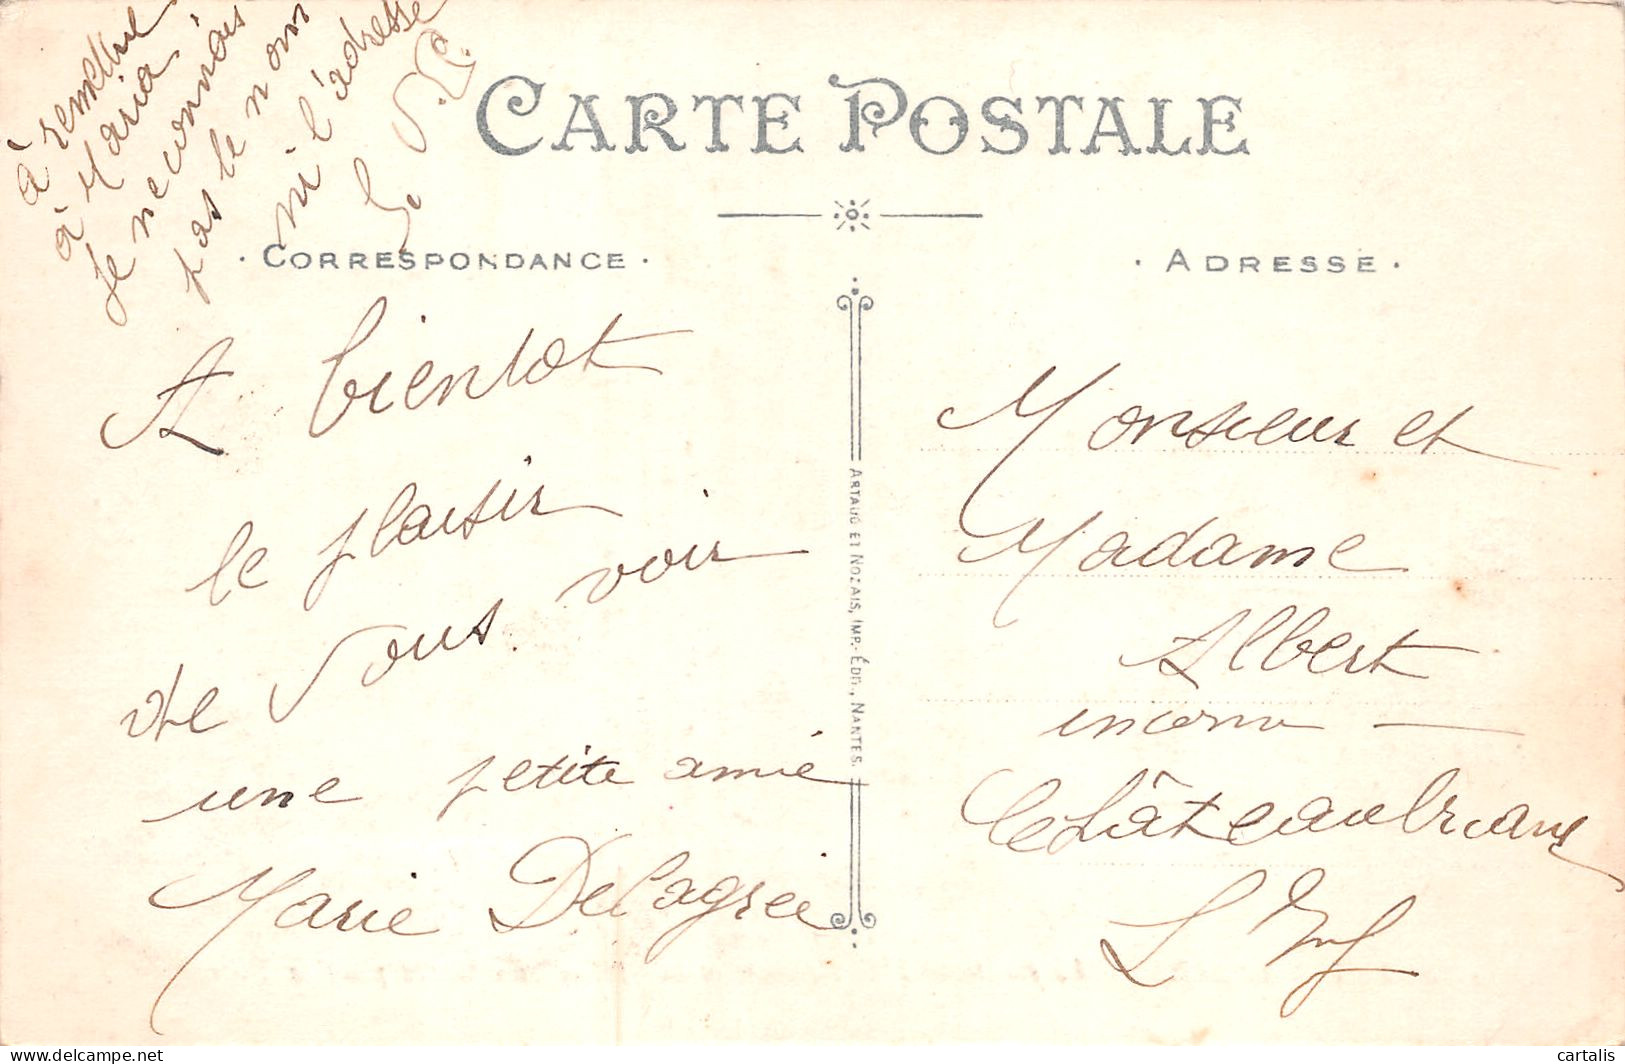 à remettre
à Maria
je ne connais
pas le nom
ni l'adresse
CARTE POSTALE
· CORRESPONDANCE ·
· ADRESSE ·
A bientot
le plaisir
de vous voir
une petite amie
Marie Delagrée
ARTAUD ET NOZAIS, IMP.-ÉDIT., NANTES.
Monsieur et
Madame
Albert
Châteaubriant
L Inf
delcampe.net
cartalis